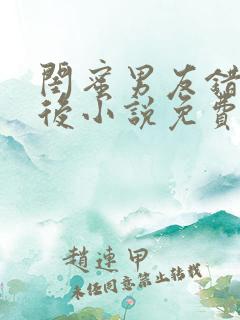 閨蜜男友錯
後小說免費
趙連甲
未經同意禁止轉載